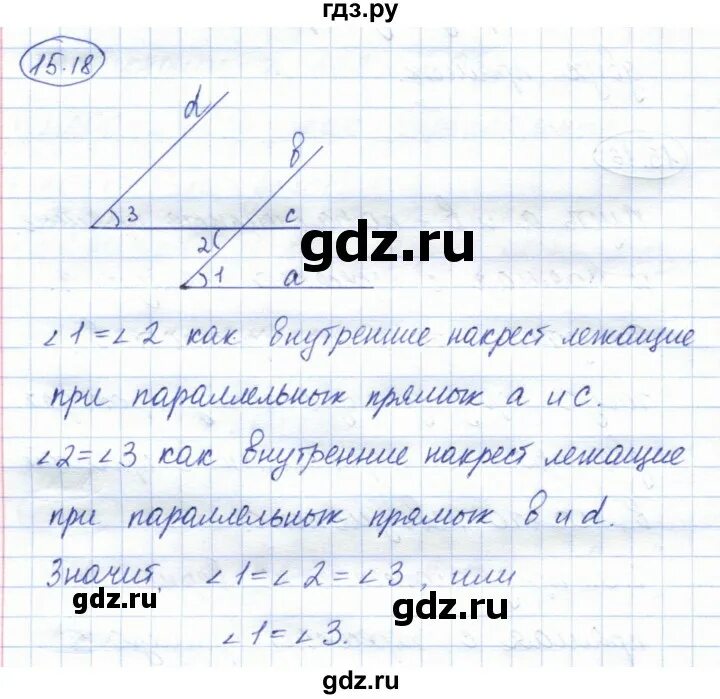 гдз.ру
15.18
d
b
3
c
2
1
a
gdz.ru
∠1=∠2 как внутренние накрест лежащие
при параллельных прямых a и c.
∠2=∠3 как внутренние накрест лежащие
при параллельных прямых b и d.
Значит, ∠1=∠2=∠3, или
gdz.ru
gdz.ru
∠1=∠3.
gdz.ru